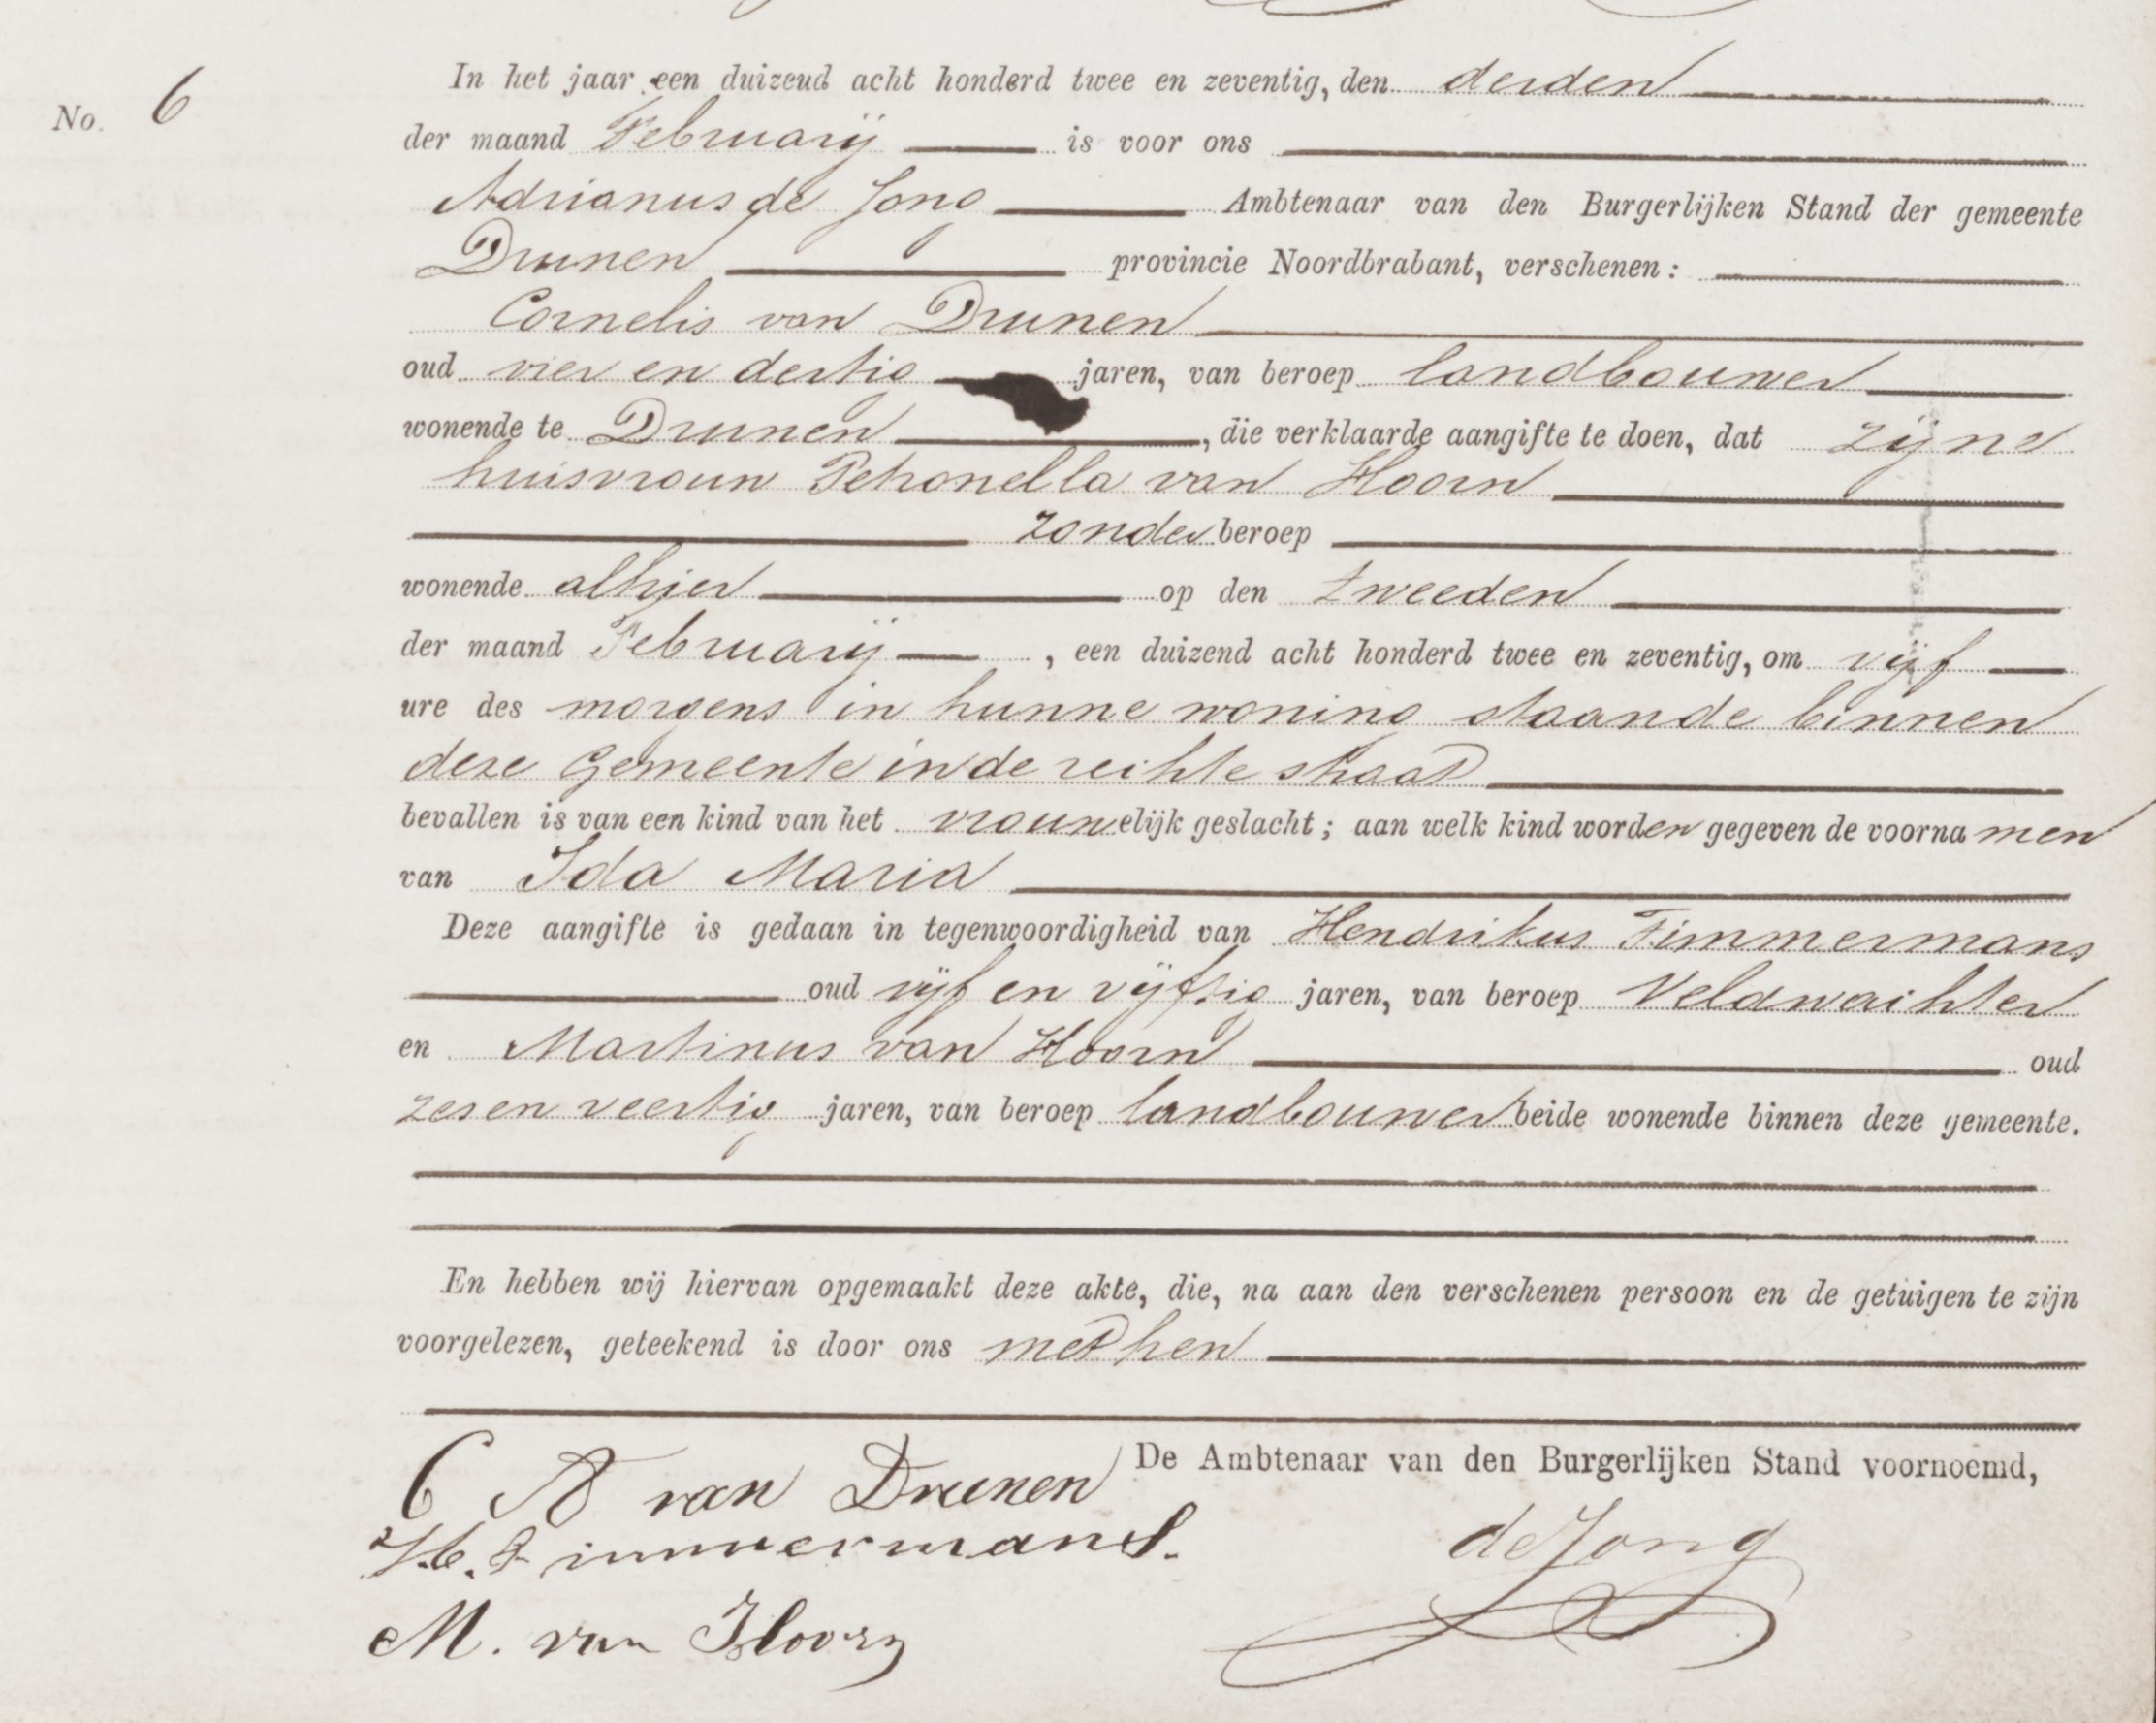 No. 6
In het jaar een duizend acht honderd twee en zeventig, den derden
der maand Februarij is voor ons
Adrianus de Jong Ambtenaar van den Burgerlijken Stand der gemeente
Drunen provincie Noordbrabant, verschenen:
Cornelis van Drunen
oud vier en dertig jaren, van beroep landbouwer
wonende te Drunen, die verklaarde aangifte te doen, dat zijne
huisvrouw Petronella van Hoorn
zonder beroep
wonende alhier op den tweeden
der maand Februarij, een duizend acht honderd twee en zeventig, om vijf
ure des morgens in hunne woning staande binnen
deze Gemeente in de rechte straat
bevallen is van een kind van het vrouwelijk geslacht; aan welk kind worden gegeven de voornamen
van Ida Maria
Deze aangifte is gedaan in tegenwoordigheid van Hendrikus Timmermans
oud vijf en vijftig jaren, van beroep Veldwachter
en Martinus van Hoorn oud
zes en veertig jaren, van beroep landbouwer beide wonende binnen deze gemeente.
En hebben wij hiervan opgemaakt deze akte, die, na aan den verschenen persoon en de getuigen te zijn
voorgelezen, geteekend is door ons met hen
De Ambtenaar van den Burgerlijken Stand voornoemd,
C A van Drunen
H. Timmermans. de Jong
M. van Hoorn